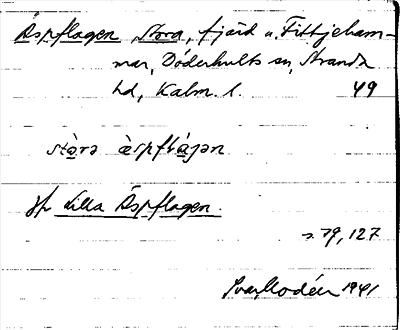 Äspflagen Stora, fjärd u. Fittjeham-
mar, Döderhults sn, Stranda
hd, Kalm. l. 49
stòra èspflágan
Jfr Lilla Äspflagen.
s. 79, 127
Ivar Modéer 1941